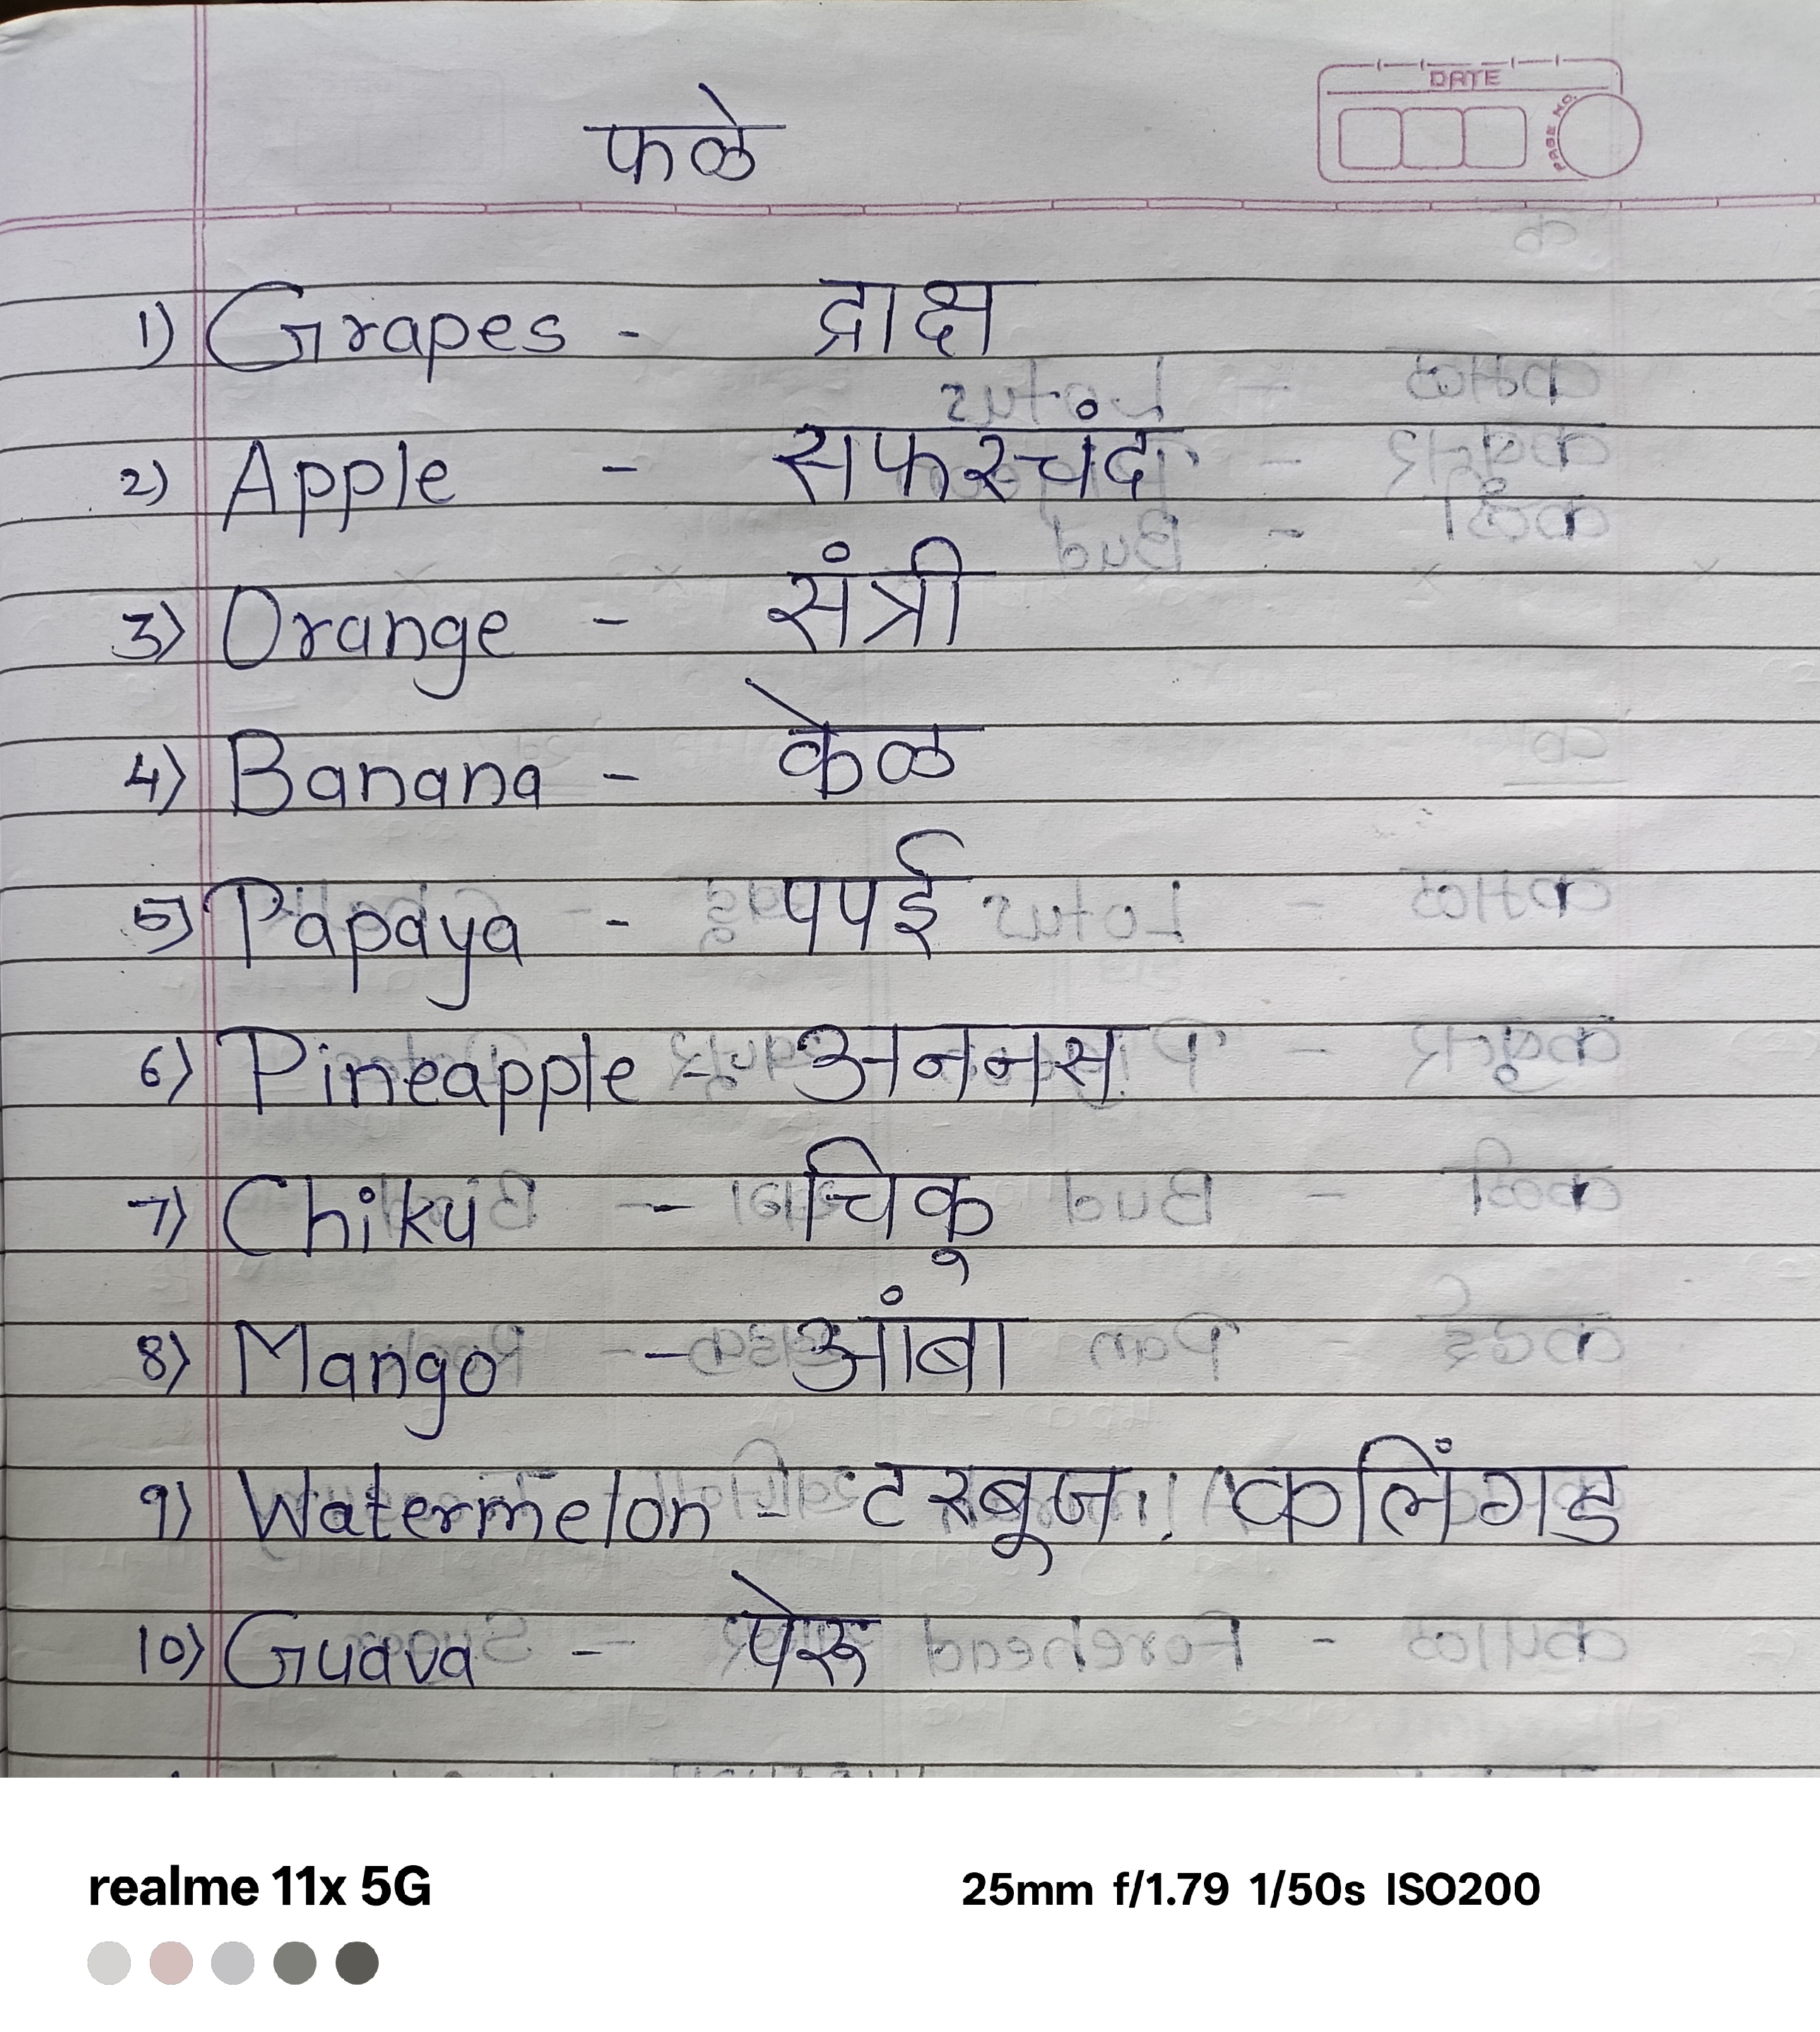 DATE
PAGE NO.
फळे
1) Grapes - द्राक्ष
2) Apple - सफरचंद
3) Orange - संत्री
4) Banana - केळ
5) Papaya - पपई
6) Pineapple - अननस
7) Chiku - चिकू
8) Mango - आंबा
9) Watermelon - टरबूज, कलिंगड
10) Guava - पेरू
realme 11x 5G
25mm f/1.79 1/50s ISO200